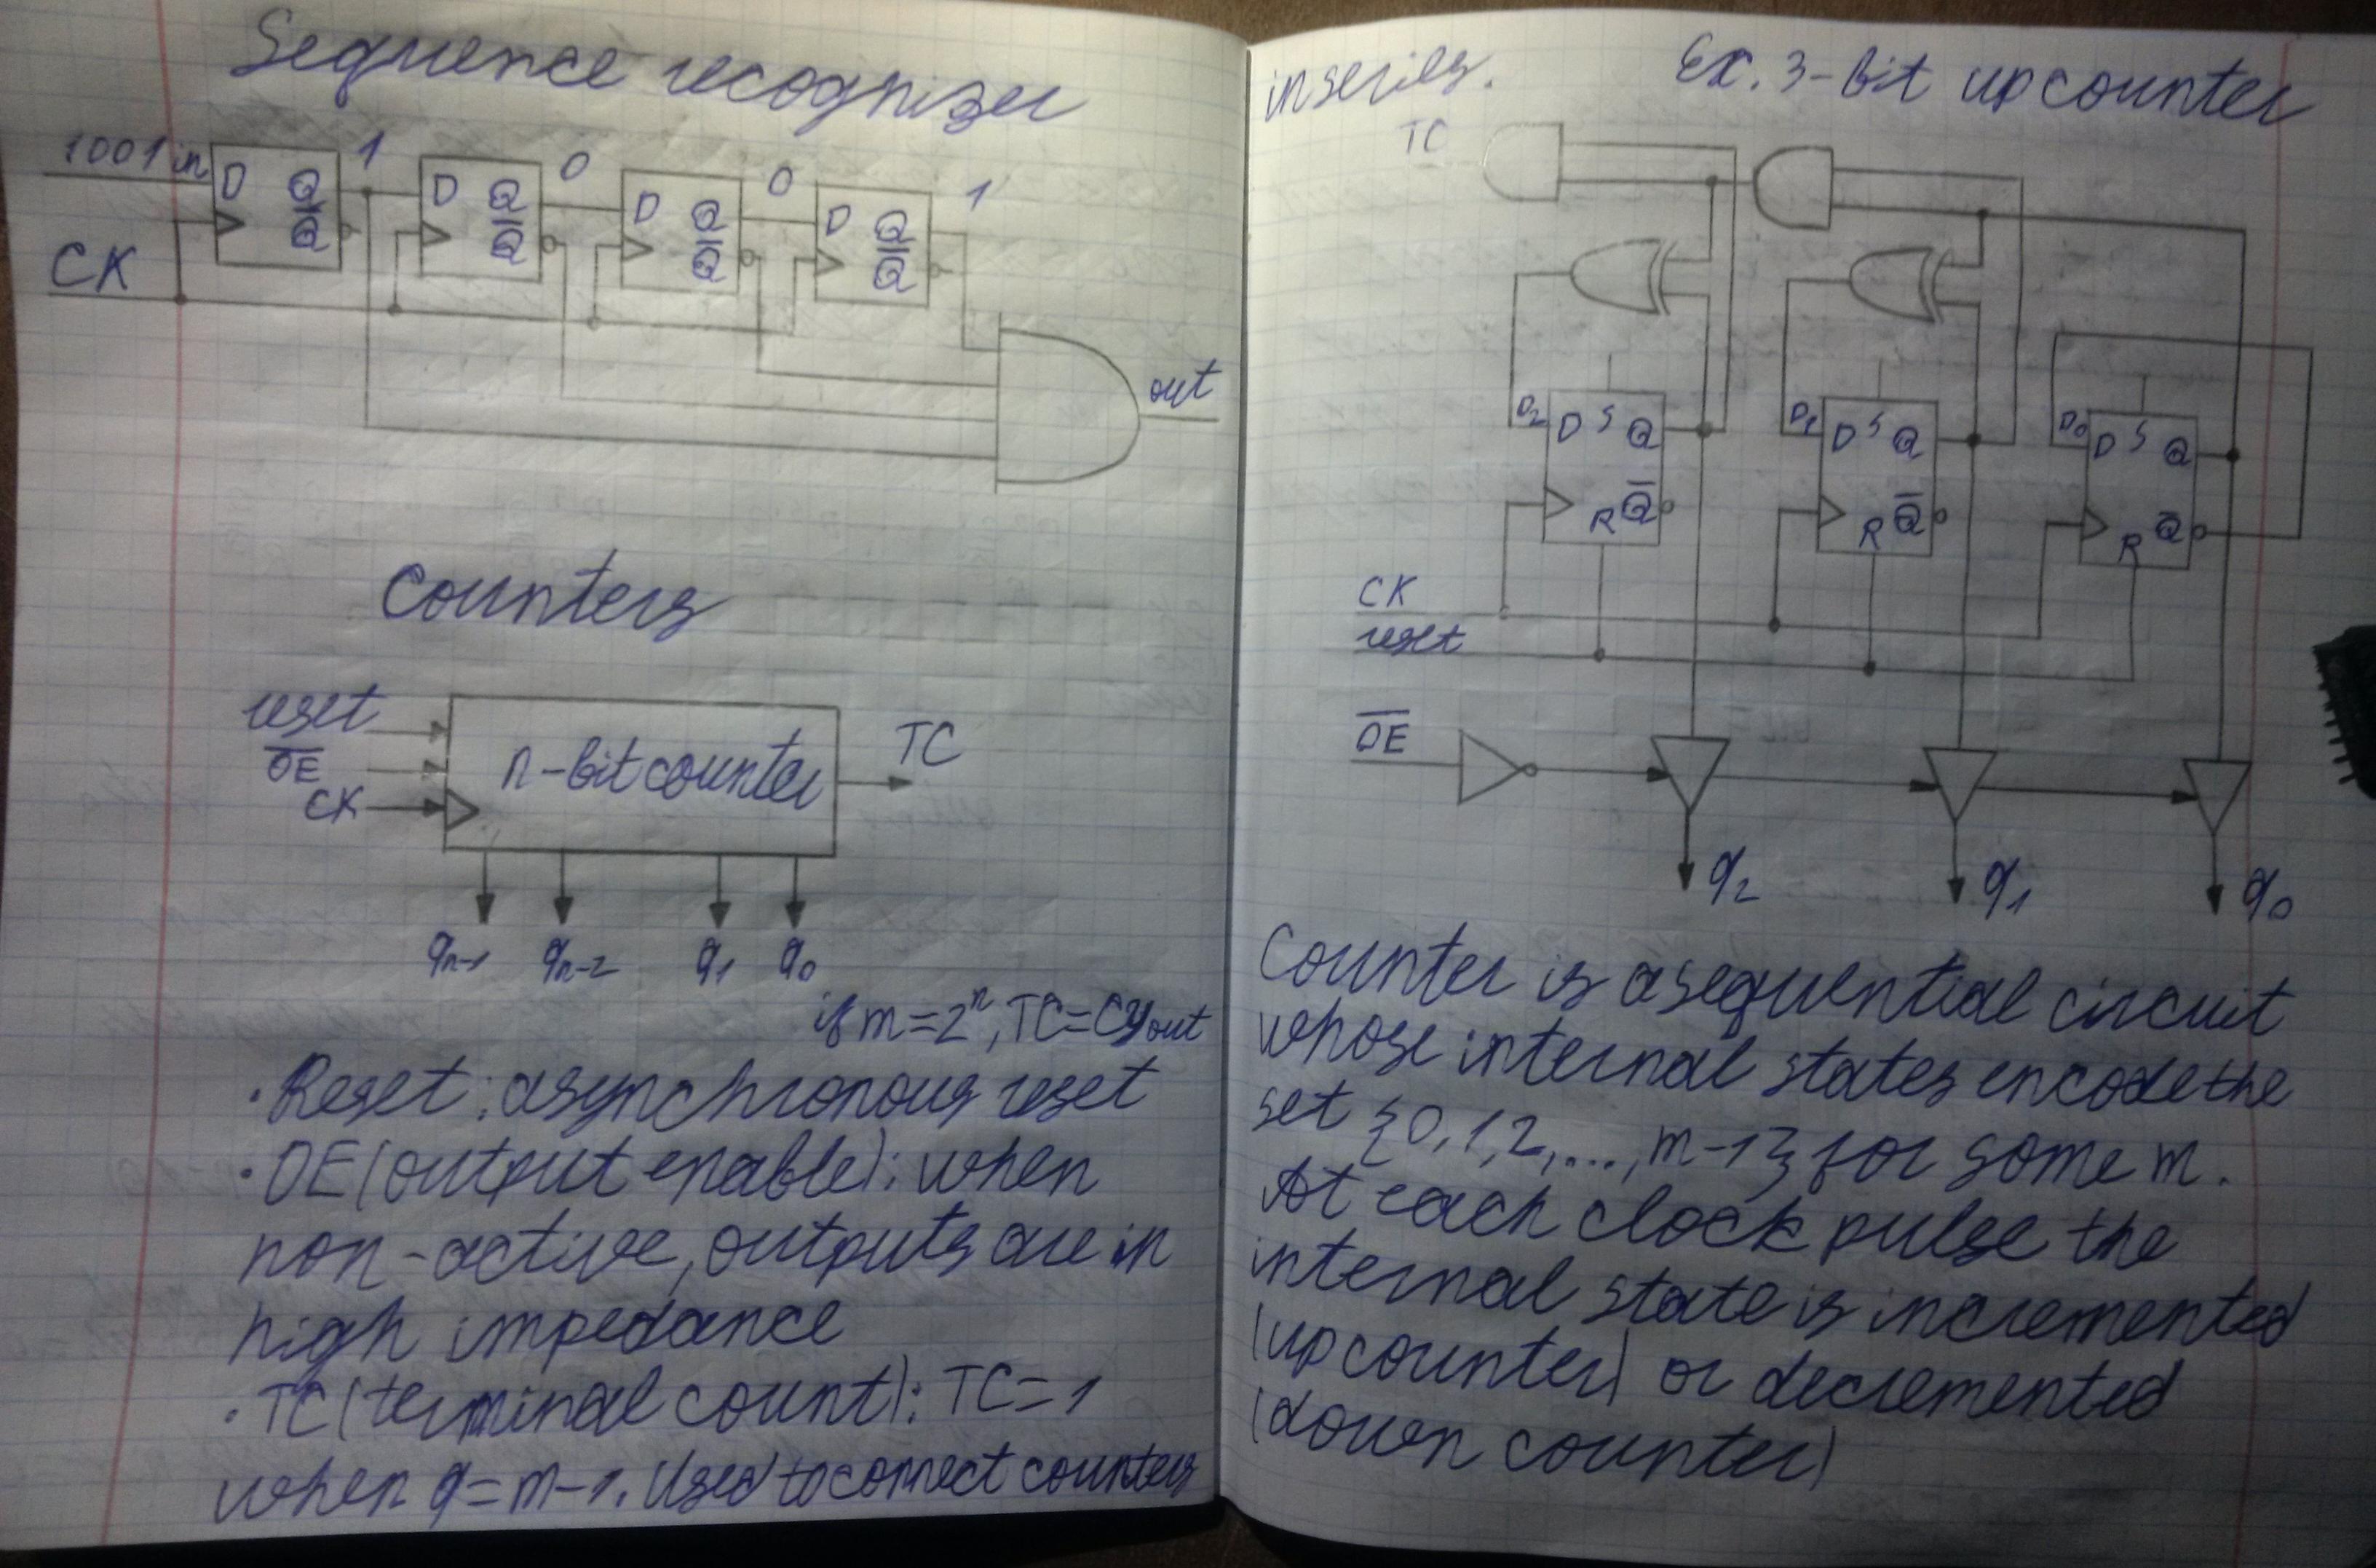 Sequence recognizer
1001 in 1 0 0 1
D Q D Q D Q D Q
Q̅ Q̅ Q̅ Q̅
CK
out
Counters
reset
O̅E̅
CK
n-bit counter
TC
qn-1 qn-2 q1 q0
if m=2ⁿ, TC=Cyout
·Reset: asynchronous reset
·OE(output enable): when
non-active, outputs are in
high impedance
·TC(terminal count): TC=1
when q=m-1. Used to connect counters
in series. Ex. 3-bit up counter
TC
D2 D S Q D1 D S Q D0 D S Q
R Q̅ R Q̅ R Q̅
CK
reset
O̅E̅
q2 q1 q0
Counter is a sequential circuit
whose internal states encode the
set {0,1,2,...,m-1} for some m.
At each clock pulse the
internal state is incremented
(up counter) or decremented
(down counter)